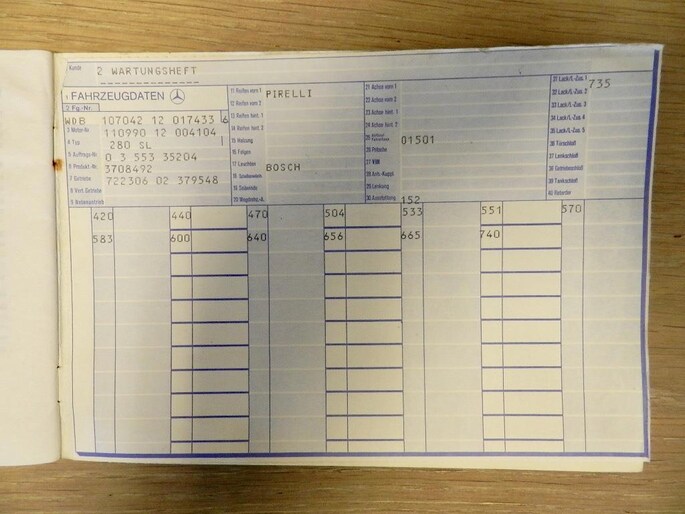 Kunde 2 WARTUNGSHEFT
1 FAHRZEUGDATEN
2 Fg.-Nr.
WDB 107042 12 017433 6
3 Motor-Nr 110990 12 004104
4 Typ 280 SL
5 Auftrags-Nr. 0 3 553 35204
6 Produkt.-Nr. 3708492
7 Getriebe 722306 02 379548
8 Vert.Getriebe
11 Reifen vorn 1 PIRELLI
12 Reifen vorn 2
13 Reifen hint. 1
14 Reifen hint. 2
15 Heizung
16 Felgen
17 Leuchten BOSCH
21 Achse vorn 1
22 Achse vorn 2
23 Achse hint. 1
24 Achse hint. 2
01501
26 Pritsche
28 Anh.-Kuppl.
29 Lenkung
30 Ausstattung 152
31 Lack/L.-Zus. 1 735
32 Lack/L.-Zus. 2
33 Lack/L.-Zus. 3
34 Lack/L.-Zus. 4
35 Lack/L.-Zus. 5
36 Türschloß
37 Lenkschloß
38 Getriebeschloß
39 Tankschloß
420 440 470 504 533 551 570
583 600 640 656 665 740